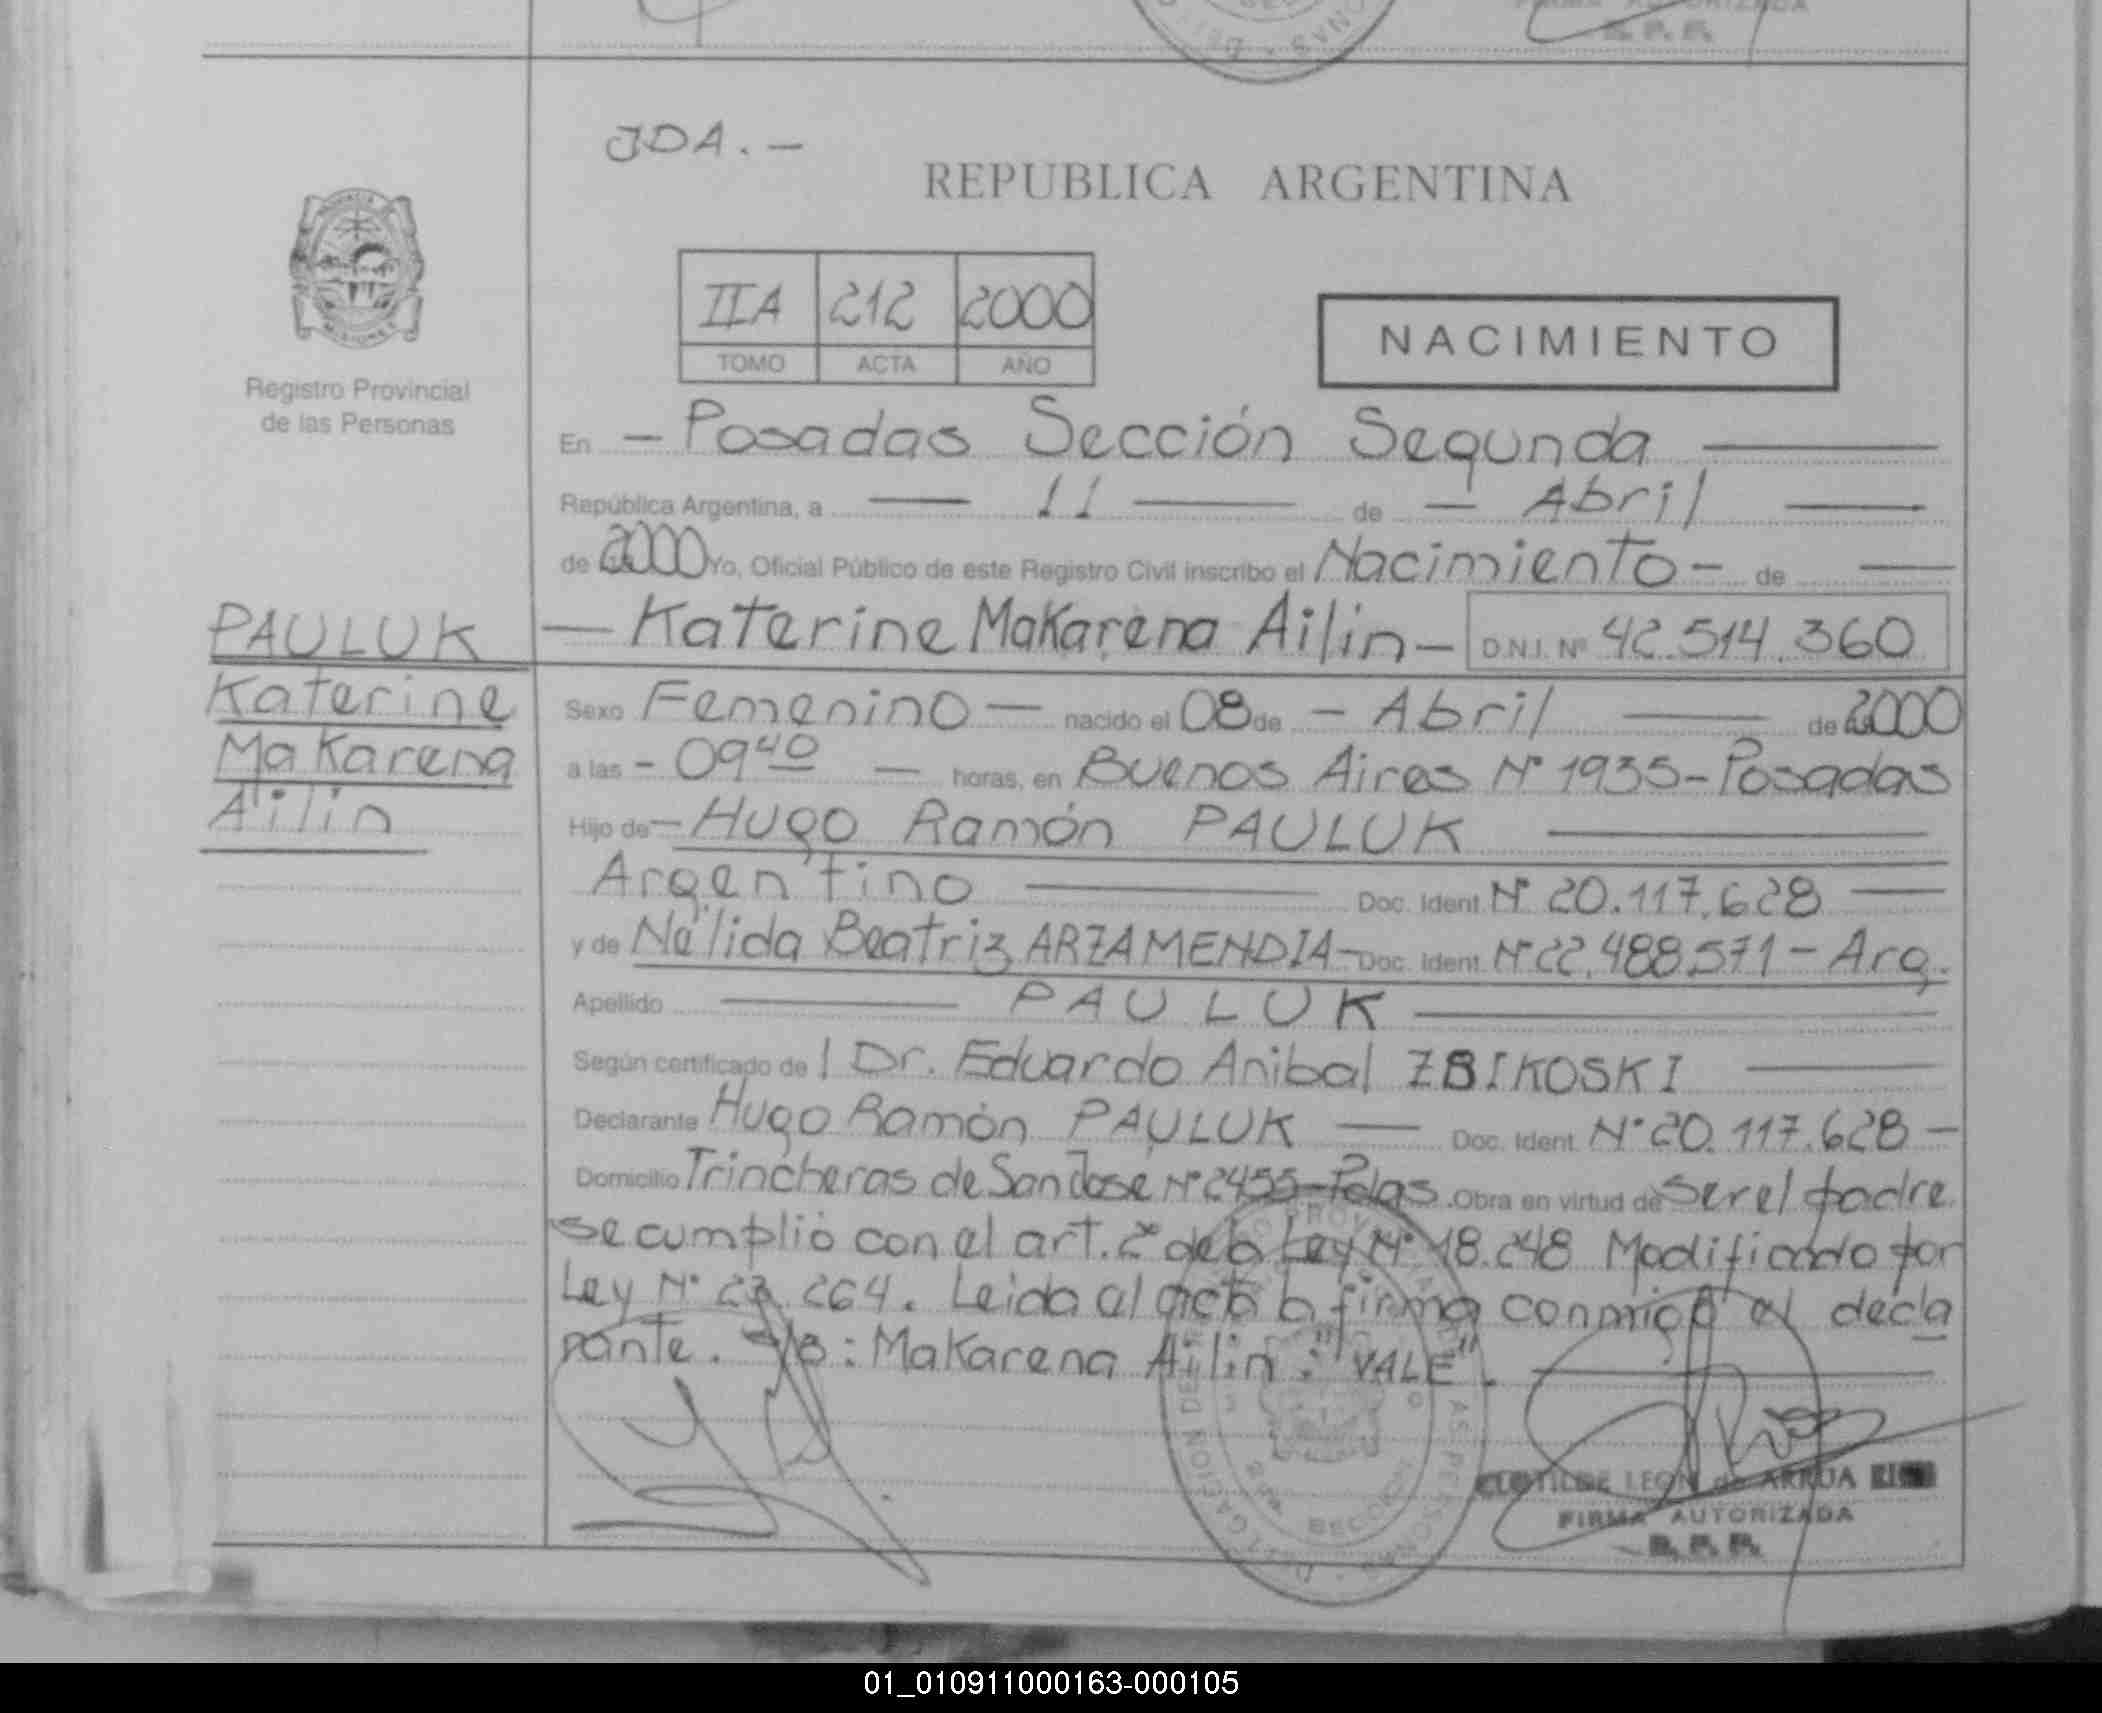 JDA.-
REPUBLICA ARGENTINA
IIA 212 2000
TOMO ACTA AÑO
NACIMIENTO
Registro Provincial
de las Personas
En - Posadas Sección Segunda
República Argentina, a 11 de - Abril
de 2000 Yo, Oficial Público de este Registro Civil inscribo el Nacimiento - de
PAULUK
Katerine
Makarena
Ailin
- Katerine Makarena Ailin - D.N.I. Nº 42.514.360
Sexo Femenino - nacido el 08 de - Abril de 2000
a las - 09 40 - horas, en Buenos Aires Nº 1935 - Posadas
Hijo de - Hugo Ramón PAULUK
Argentino Doc. Ident. Nº 20.117.628
y de Nélida Beatriz ARZAMENDIA - Doc. Ident. Nº 22.488.571 - Arg.
Apellido PAULUK
Según certificado de l Dr. Eduardo Anibal ZBIKOSKI
Declarante Hugo Ramón PAULUK - Doc. Ident. Nº 20.117.628 -
Domicilio Trincheras de San José Nº 2455 - Pdas. Obra en virtud de ser el padre
se cumplió con el art. 2º de la Ley Nº 18.248 Modificado por
Ley Nº 23.264. Leida al acta la firma conmigo el decla
rante. S/B: Makarena Ailin: "VALE".
CLOTILDE LEON de ARRUA
FIRMA AUTORIZADA
R.P.P.
01_010911000163-000105